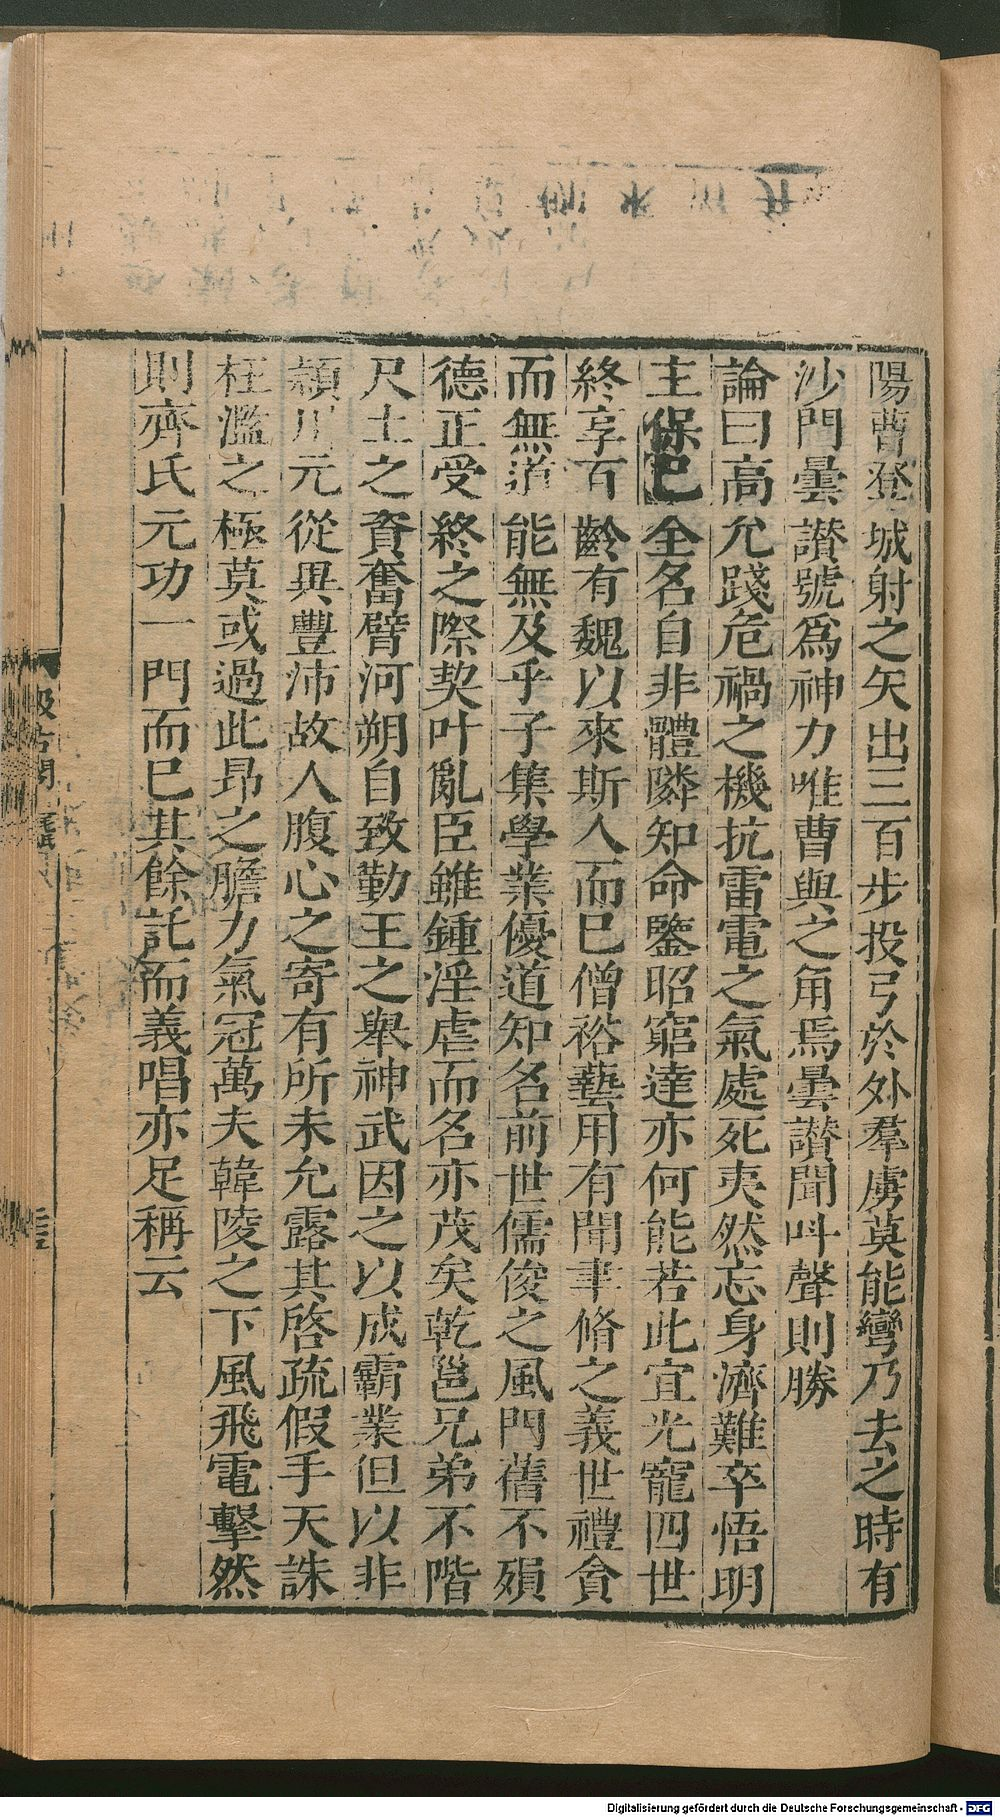 陽曹登城射之矢出三百步投弓於外羣虜莫能彎乃去之時有
沙門曇讃號爲神力唯曹與之角焉曇讃聞呌聲則勝
論曰高允踐危禍之機抗雷電之氣處死夷然忘身濟難卒悟明
主保巳全名自非體隣知命鑒昭窮達亦何能若此宜光寵四世
終享百齡有魏以來斯人而已僧裕藝用有聞聿脩之義世禮貪
而無道能無及乎子集學業優道知名前世儒俊之風門舊不殞
德正受終之際契叶亂臣雖鍾淫虐而名亦茂矣乾邕兄弟不階
尺土之資奮臂河朔自致勤王之舉神武因之以成霸業但以非
潁川元從異豐沛故人腹心之寄有所未允露其啓疏假手天誅
枉濫之極莫或過此昻之膽力氣冠萬夫韓陵之下風飛電擊然
則齊氏元功一門而巳其餘託而義唱亦足稱云
汲古閣
Digitalisierung gefördert durch die Deutsche Forschungsgemeinschaft - DFG